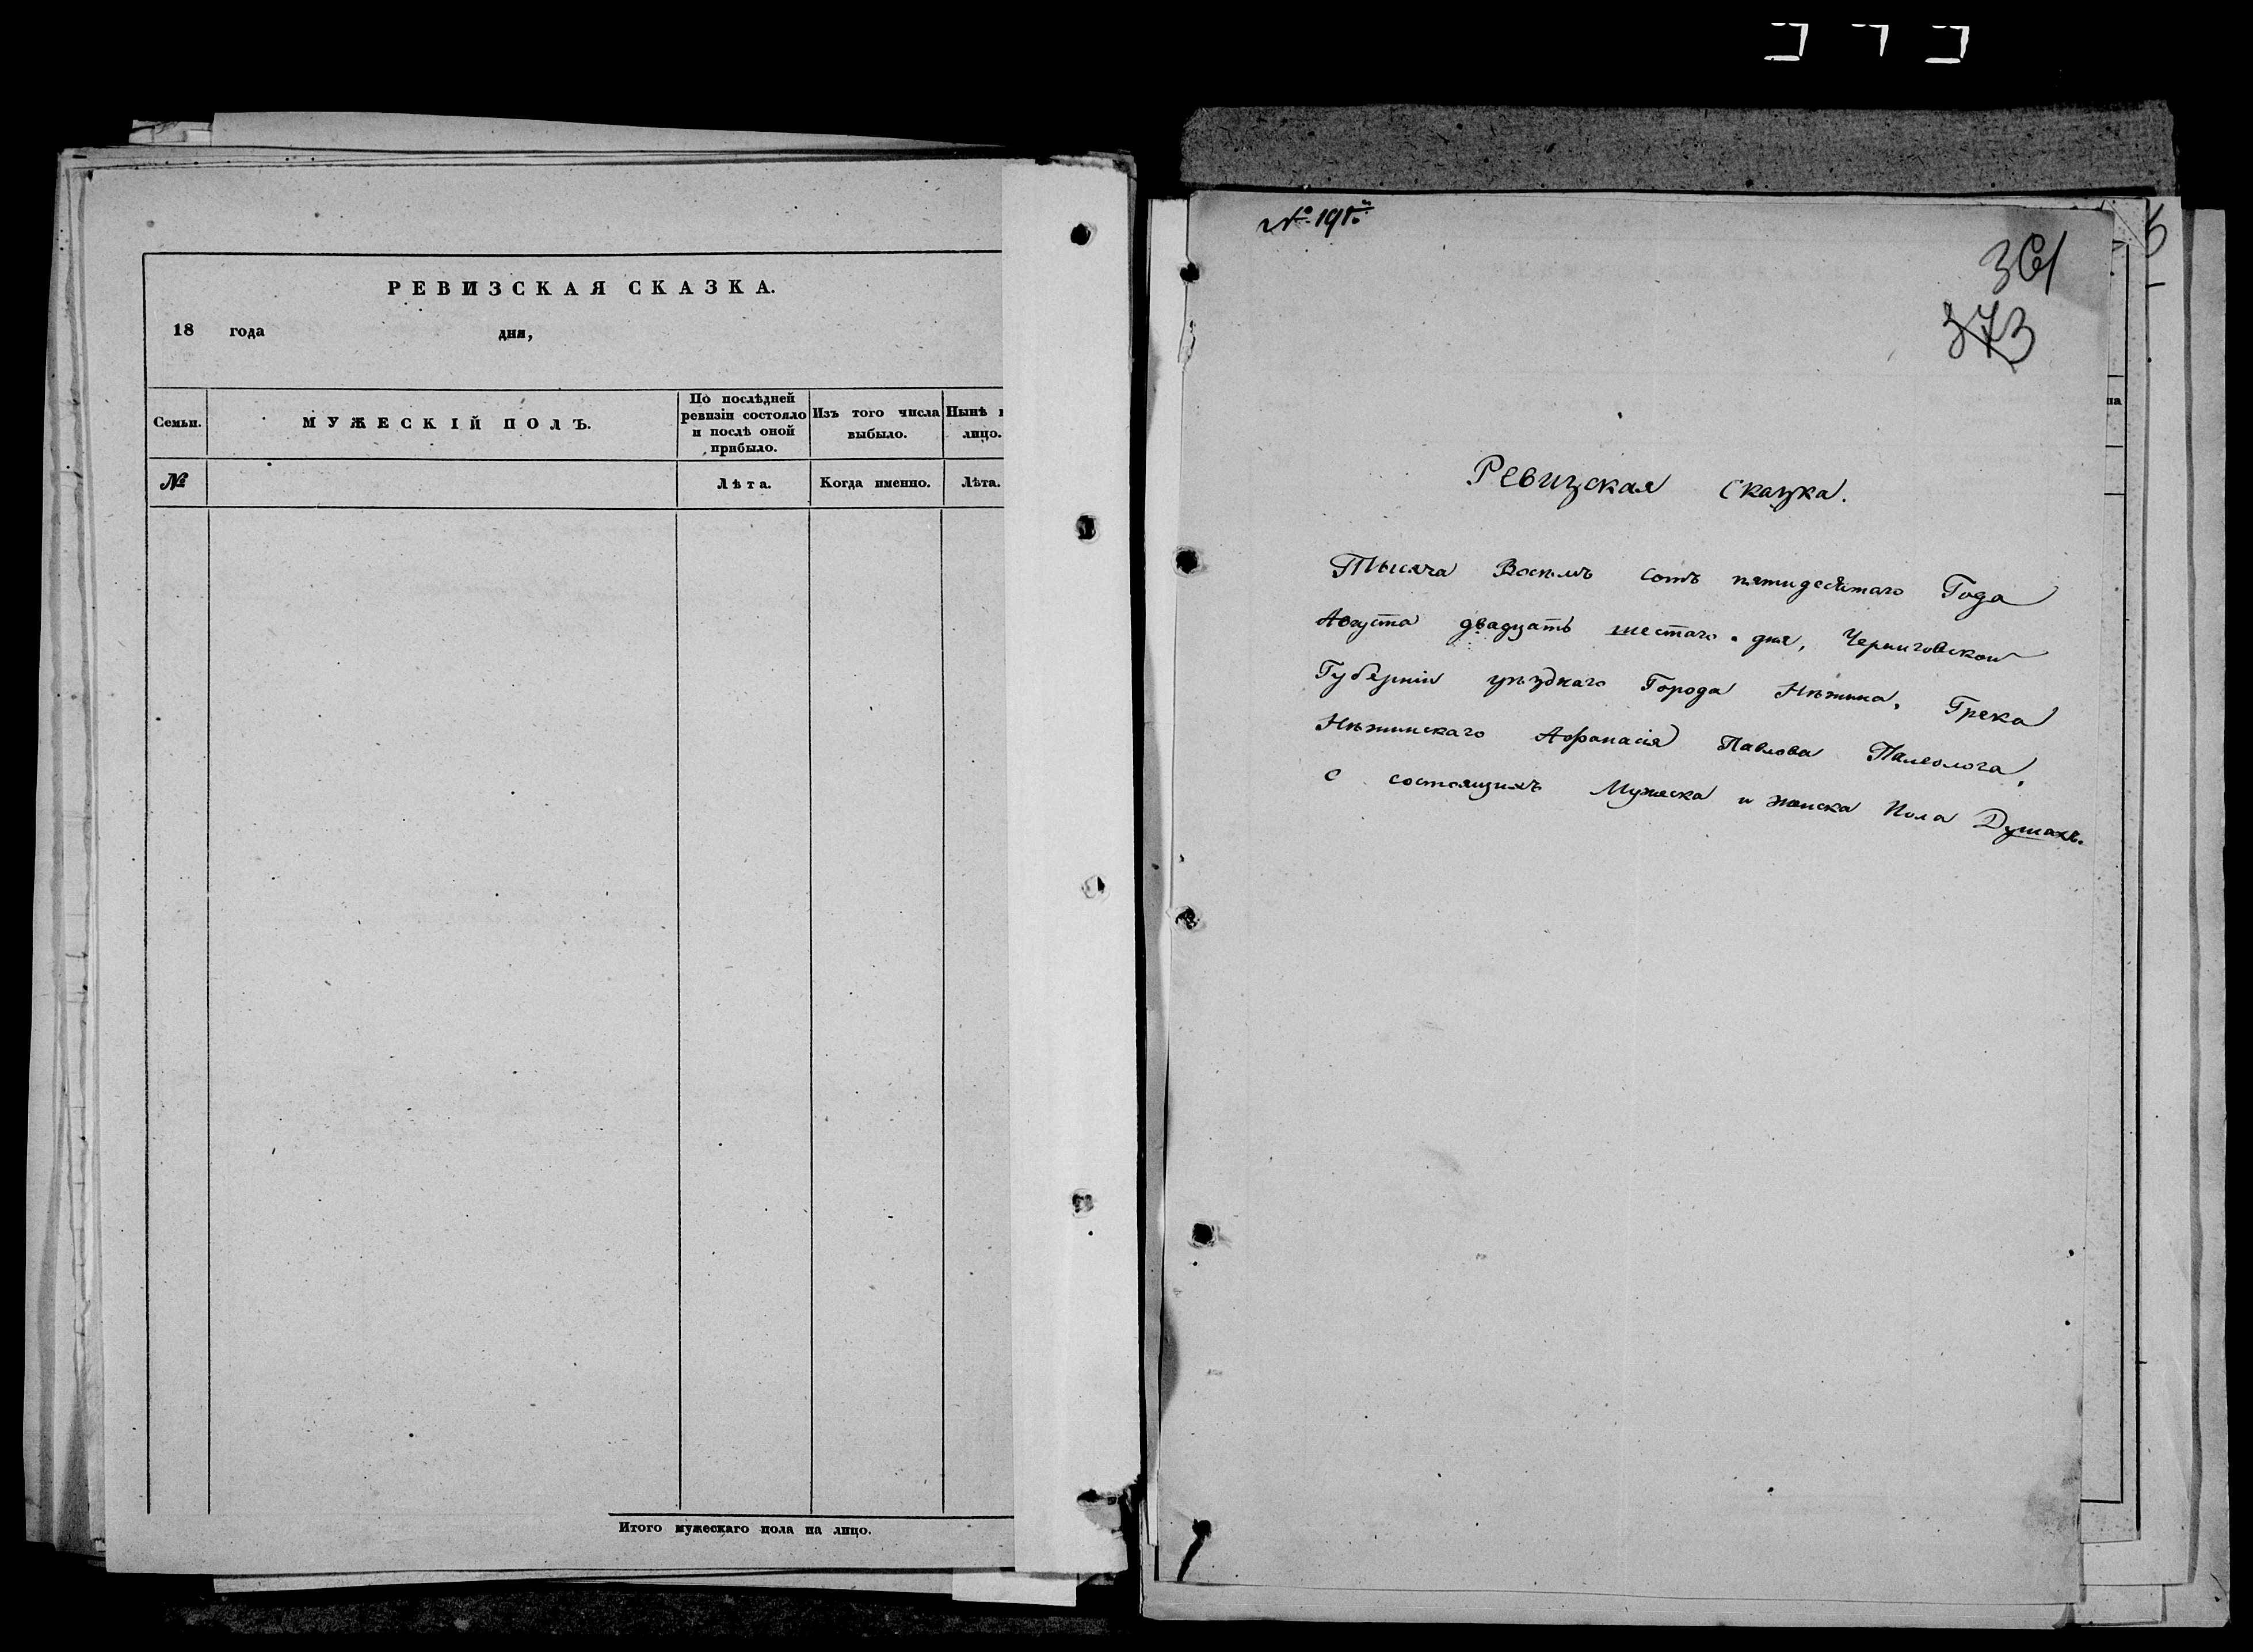 РЕВИЗСКАЯ СКАЗКА.
18 года дня,
Семьи.
МУЖЕСКІЙ ПОЛЪ.
По послѣдней
ревизіи состояло
и послѣ оной
прибыло.
Изъ того числа
выбыло.
Нынѣ
лицо.
№
Лѣта.
Когда именно.
Лѣта.
Итого мужескаго пола на лицо.
361
373
Ревизская сказка.
Тысяча Восемь сотъ пятидесятаго Года
Августа двадцать шестаго дня, Черниговской
Губерніи уѣзднаго Города Нѣжина, Грека
Нѣжинскаго Афанасія Павлова Палеолога,
о состоящихъ Мужеска и женска Пола Душахъ.
на